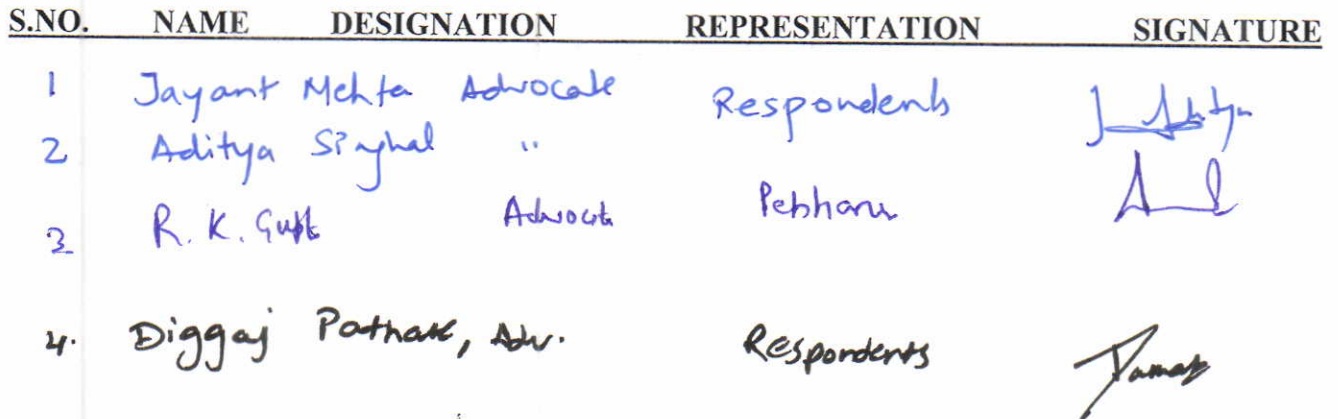 S.NO. NAME DESIGNATION REPRESENTATION SIGNATURE
1 Jayant Mehta Advocate Respondents
2 Aditya Singhal "
3 R. K. Gupta Advocate Petitioner
4. Diggaj Pathak, Adv. Respondents